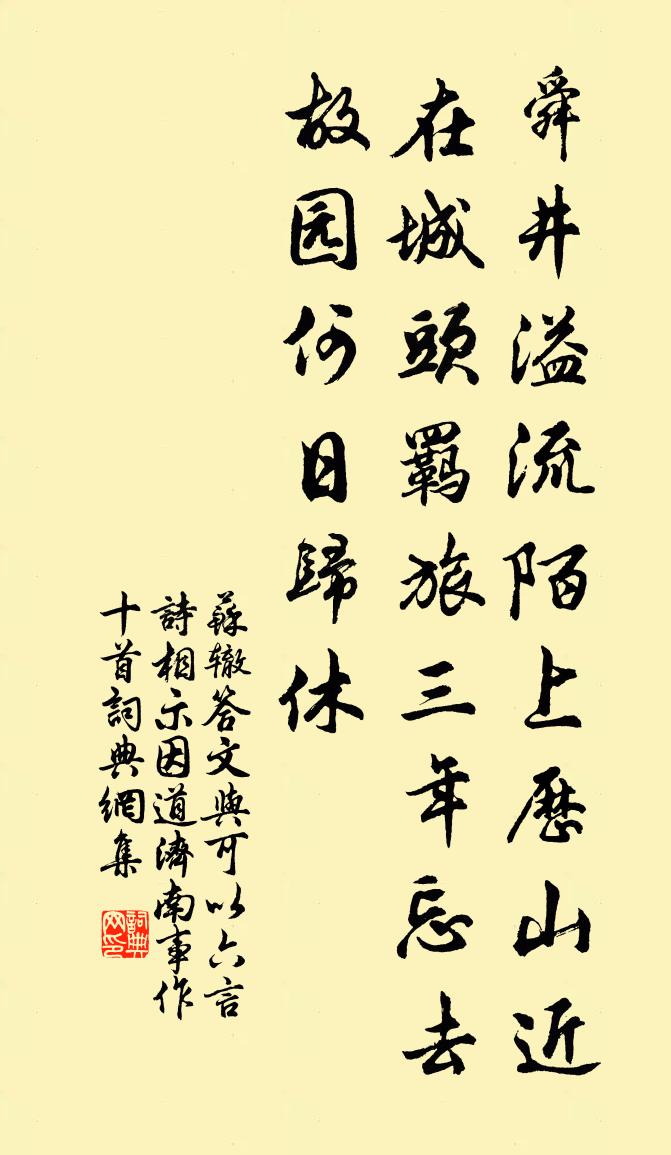 舜井溢流陌上歷山近
在城頭羈旅三年忘去
故园何日歸休
蘇辙答文與可以六言
詩相示因道濟南事作
十首詞典網集
詞典
网印